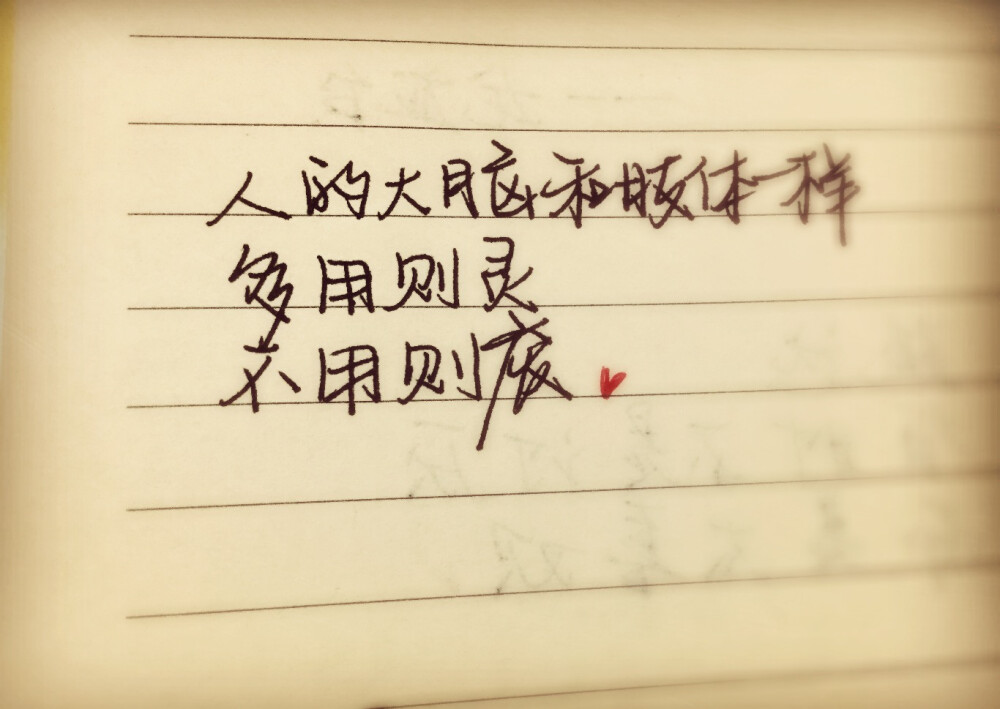 人的大脑和肢体一样
多用则灵
不用则废